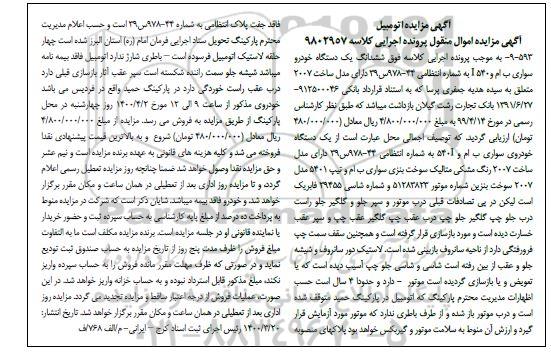 آگهی مزایده اتومبیل
آگهی مزایده اموال منقول پرونده اجرایی کلاسه ۹۸۰۲۹۵۷
۵۹۳-۹- به موجب پرونده اجرایی کلاسه فوق ششدانگ یک دستگاه خودرو
سواری ب ام و ۵۴۰ I به شماره انتظامی ۴۴-۹۷۸س۳۹ دارای مدل ساخت ۲۰۰۷
متعلق به سیده هدیه جعفری پرسا که به استناد قرارداد بانکی ۹۱۲۵۰۰۰۴۶-
۱۳۹۱/۶/۲۷ بانک تجارت رشت گیلان بازداشت میباشد که طبق نظر کارشناس
رسمی در مورخ ۹۹/۴/۱۴ به مبلغ ۴/۸۰۰/۰۰۰/۰۰۰ ریال معادل (۴۸۰/۰۰۰/۰۰۰
تومان) ارزیابی گردید. که توصیف اجمالی محل عبارت است از یک دستگاه
خودروی سواری ب ام و ۵۴۰I به شماره انتظامی ۴۴-۹۷۸س۳۹ دارای مدل
ساخت ۲۰۰۷ رنگ مشکی متالیک سوخت بنزی سواری ب ام و تیپ ۵۴۰I مدل
۲۰۰۷ سوخت بنزین شماره موتور ۵۱۲۸۳۸۲۳ و شماره شاسی ۳۹۴۵۵ فابریک
است لیکن در پی تصادفات قبلی درب موتور و سپر جلو و گلگیر جلو راست
درب جلو چپ گلگیر جلو چپ درب عقب چپ گلگیر عقب چپ و سپر عقب
خسارت دیده است و مورد بازسازی قرار گرفته است و همچنین سقف سمت چپ
فرورفتگی دارد از ناحیه سانروف بازبینی شده است. لاستیک دور سانروف و شیشه
جلو و عقب از بین رفته است شاسی و شاسی جلو چپ آسیب دیده است که یا
تعویض و یا بازسازی گردیده است موتور - دارد و حدودا ۴ سال است حسب
اظهارات مدیریت محترم پارکینگ که اتومبیل در پارکینگ حمید متوقف شده
است و درب موتور باز شده و از طرف باطری ندارد که موتور مورد آزمایش قرار
گیرد و ارزش آن منوط به سلامت موتور و گیربکس خواهد بود پلاکهای منصوبه
فاقد جفت پلاک انتظامی به شماره ۴۴-۹۷۸س۳۹ است و حسب اعلام مدیریت
محترم پارکینگ تحویل ستاد اجرایی فرمان امام (ره) استان البرز شده است چهار
حلقه لاستیک اتومبیل فرسوده است - باطری شارژ ندارد اتومبیل فاقد بیمه نامه
میباشد شیشه جلو سمت راننده شکسته است سپر عقب آثار بازسازی قبلی دارد
درب عقب راست خوردگی دارد در پارکینگ حمید واقع در فردیس می باشد
خودروی مذکور از ساعت ۹ الی ۱۲ مورخ ۱۴۰۰/۴/۲ روز چهارشنبه در محل
پارکینگ از طریق مزایده به فروش می رسد. مزایده از مبلغ ۴/۸۰۰/۰۰۰/۰۰۰
ریال معادل (۴۸۰/۰۰۰/۰۰۰ تومان) شروع و به بالاترین قیمت پیشنهادی نقدا
فروخته می شد و کلیه هزینه های قانونی به عهده برنده مزایده است و نیم عشر
و حق مزایده نقدا وصول خواهد شد ضمنا چنانچه روز مزایده تعطیل رسمی اعلام
گردد و تا مزایده روز اداری بعد از تعطیلی در همان ساعت و مکان مقرر برگزار
خواهد شد. و خودرو فاقد بیمه میباشد. شایان ذکر است که شرکت در مزایده منوط
به پرداخت ده درصد از مبلغ پایه کارشناسی به حساب سپرده ثبت و حضور خریدار
یا نماینده قانونی او در جلسه مزایده است. برنده مزایده مکلف است ما به التفاوت
مبلغ فروش را ظرف مدت پنج روز از تاریخ مزایده به حساب صندوق ثبت تودیع
نماید و در صورتی که ظرف مهلت مقرر مانده فروش را به حساب سپرده واریز
نکند، مبلغ مذکور قابل استرداد نبوده و به حساب خزانه واریز خواهد شد. در این
صورت، عملیات فروش از درجه اعتبار ساقط و مزایده تجدید می گردد. مزایده روز
اداری بعد از تعطیلی در همان ساعت و مکان مقرر برگزار خواهد شد. تاریخ انتشار:
۱۴۰۰/۳/۲۰ رئیس اجرای ثبت اسناد کرج - ایرانی-م/الف ۷۶۸/ف